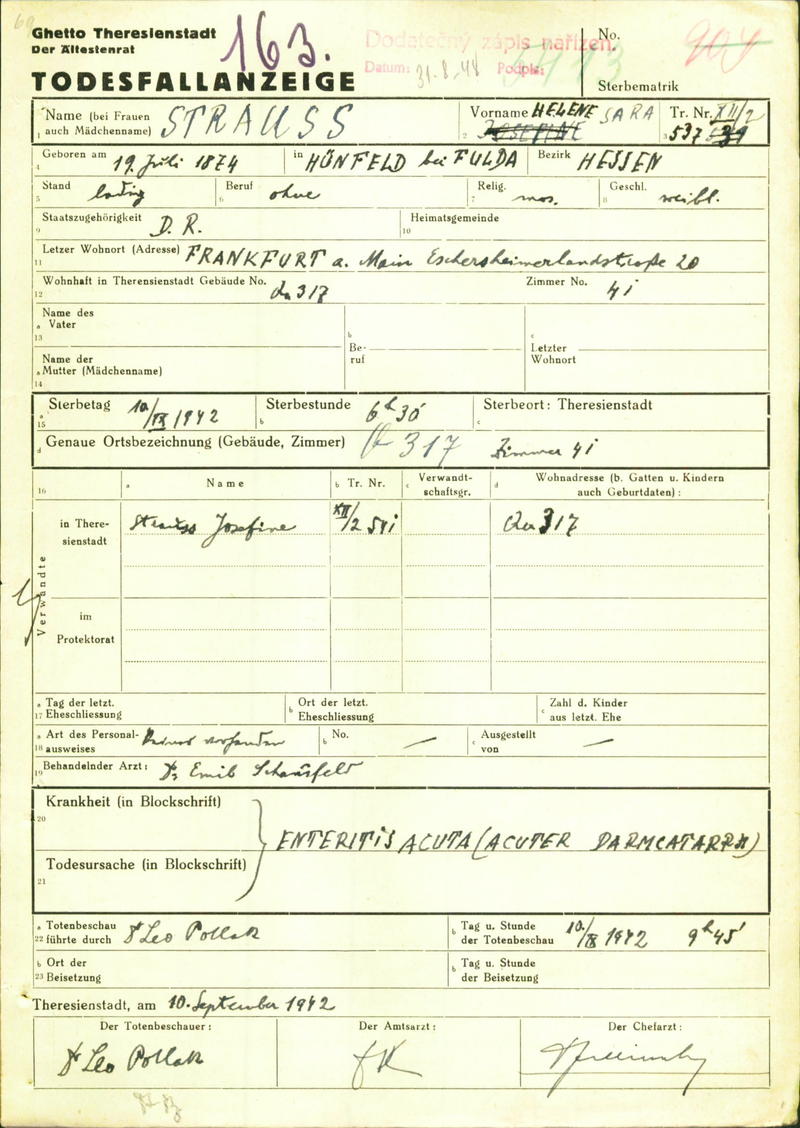 Ghetto Theresienstadt
Der Ältestenrat
163.
Dodatečný zápis nařízen.
Datum: 31.8.48 Podpis:
No.
904
TODESFALLANZEIGE
Sterbematrik
Name (bei Frauen
1 auch Mädchenname) STRAUSS
Vorname HELENE SARA
2 JOSEFINE
Tr. Nr. XII/2
3 537
4 Geboren am 19. Juli 1874
in HÜNFELD bei FULDA
Bezirk HESSEN
5 Stand ledig
6 Beruf ohne
7 Relig. mos.
8 Geschl. weibl.
9 Staatszugehörigkeit D. R.
10 Heimatsgemeinde
11 Letzer Wohnort (Adresse) FRANKFURT a. Main Eschersheimerlandstraße 20
12 Wohnhaft in Therensienstadt Gebäude No. 317
Zimmer No. 4i
Name des
a Vater
13
b Be-
ruf
c Letzter
Wohnort
Name der
a Mutter (Mädchenname)
14
a 15 Sterbetag 10/IX 1942
b Sterbestunde 6h 30
c Sterbeort: Theresienstadt
d Genaue Ortsbezeichnung (Gebäude, Zimmer) 317 Zimmer 4i
16 a Name
b Tr. Nr.
c Verwandt-
schaftsgr.
d Wohnadresse (b. Gatten u. Kindern
auch Geburtdaten):
Verwandte
in There-
sienstadt
Strauss Josefine XII/2 317
im
Protektorat
a Tag der letzt.
17 Eheschliessung
b Ort der letzt.
Eheschliessung
c Zahl d. Kinder
aus letzt. Ehe
a Art des Personal-
18 ausweises
b No. —
c Ausgestellt
von —
19 Behandelnder Arzt: Dr. Emil
Krankheit (in Blockschrift)
20
ENTERITIS ACUTA (ACUTER DARMCATARRH)
Todesursache (in Blockschrift)
21
a Totenbeschau
22 führte durch Dr Leo Pollak
b Tag u. Stunde
der Totenbeschau 10/IX 1942 9h 45'
b Ort der
23 Beisetzung
b Tag u. Stunde
der Beisetzung
Theresienstadt, am 10. September 1942
Der Totenbeschauer:
Der Amtsarzt:
Der Chefarzt:
Dr Leo Pollak